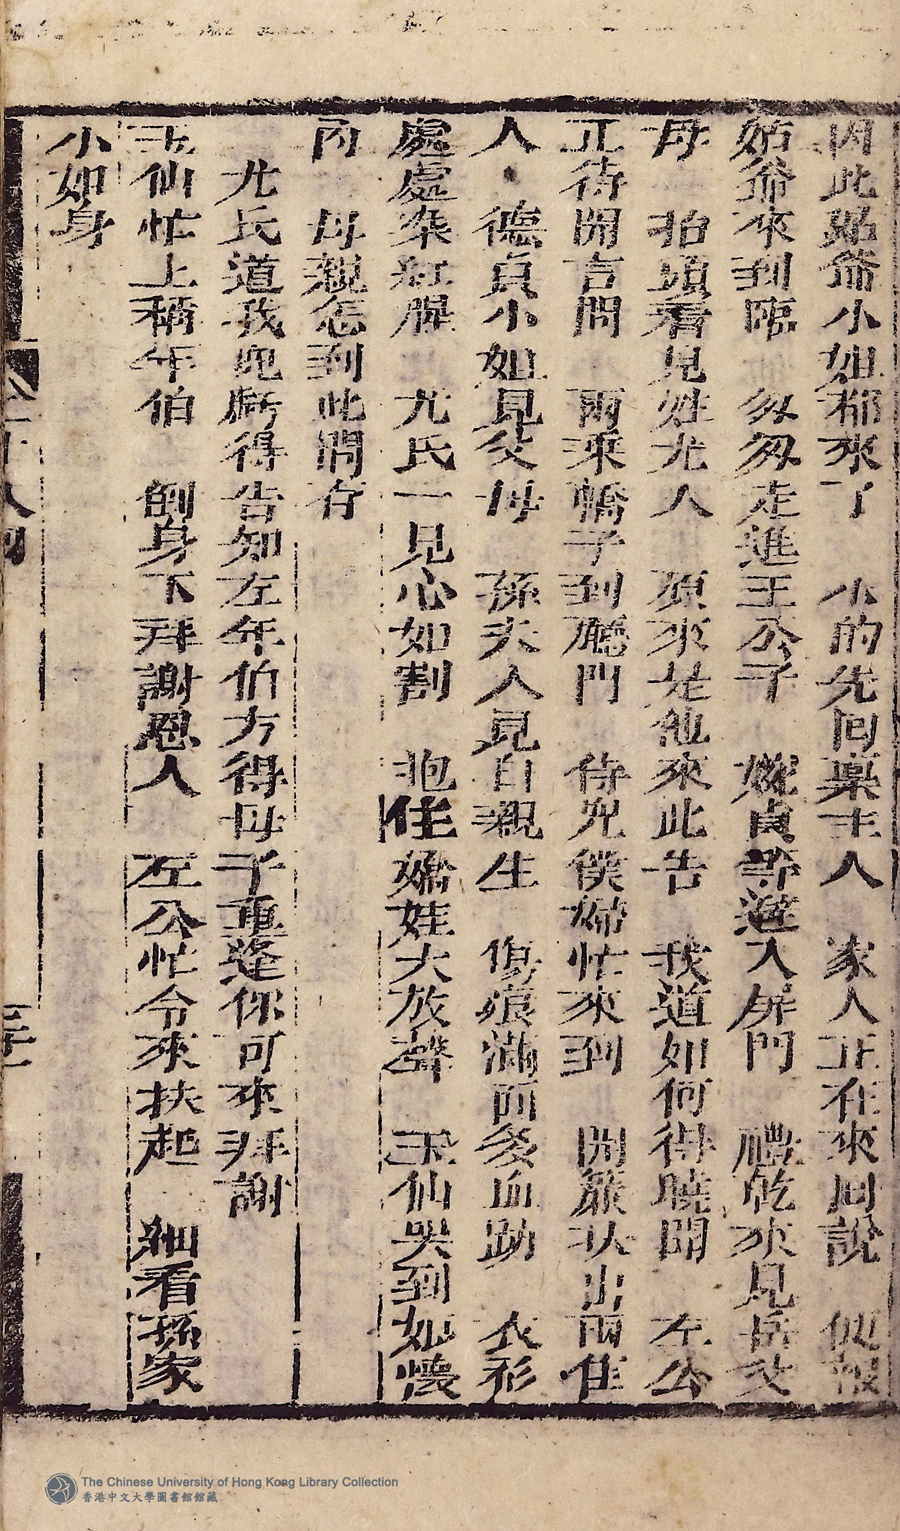 因此姑爺小姐都來了　小的先回稟主人　家人正在來回說　便報
姑爺來到臨　匆匆走進王公子　婉貞等避入屏門　禮乾來見岳父
母　抬頭看見姓尤人　原來是他來此告　我道如何得曉聞　左公
正待開言問　兩乘轎子到廳門　侍兒僕婦忙來到　開簾扶出兩佳
人　德貞小姐見父母　孫夫人見自親生　傷痕滿面多血跡　衣衫
處處染紅腥　尤氏一見心如割　抱住嬌娃大放聲　玉仙哭到如懷
內　母親怎到此間存
尤氏道我兒虧得告知左年伯方得母子重逢你可來拜謝
玉仙忙上稱年伯　倒身下拜謝恩人　左公忙令來扶起　細看孫家
小如身
卷十八回
三十一
The Chinese University of Hong Kong Library Collection
香港中文大學圖書館館藏